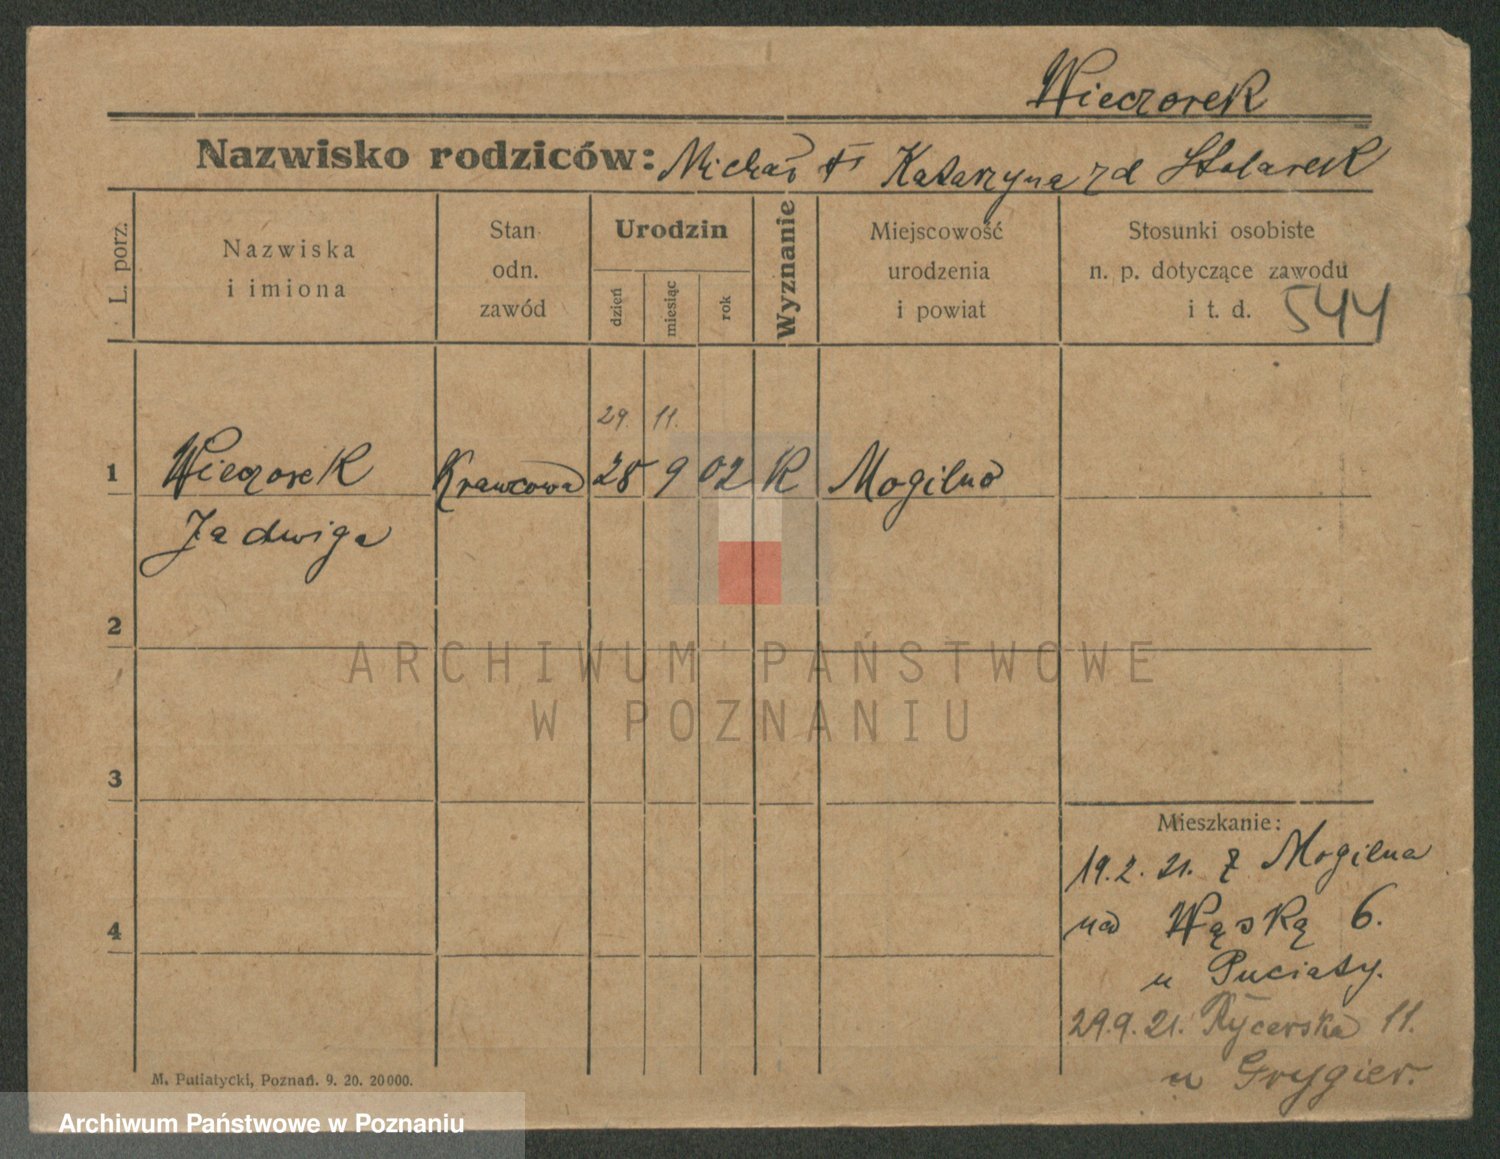 Wieczorek
Nazwisko rodziców: Michał Katarzyna zd Stolarek
L. porz.
Nazwiska
i imiona
Stan
odn.
zawód
Urodzin
dzień
miesiąc
rok
Wyznanie
Miejscowość
urodzenia
i powiat
Stosunki osobiste
n. p. dotyczące zawodu
i t. d. 544
29. 11.
1 Wieczorek Krawcowa 28 9 02 K Mogilno
Jadwiga
2
ARCHIWUM PAŃSTWOWE
W POZNANIU
3
Mieszkanie:
19.2.21. z Mogilna
4
na Wąską 6.
u Puciaty.
29.9.21. Rycerska 11.
u Grygier.
M. Putiatycki, Poznań. 9. 20. 20000.
Archiwum Państwowe w Poznaniu